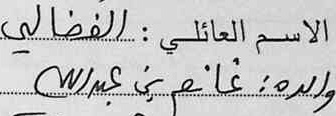 الاسم العائلي : الفضالي
والده : غانم بن عبد الله